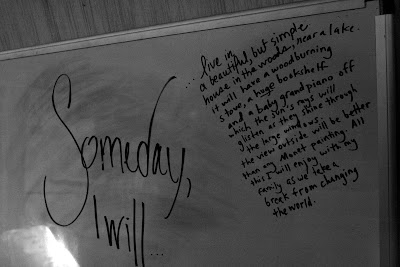 Someday,
I will...
... live in
a beautiful, but simple
house in the woods, near a lake.
it will have a woodburning
stove, a huge bookshelf
and a baby grand piano off
which the sun's rays will
glisten as they shine through
the large windows.
the view outside will be better
than any Monet painting. All
this I will enjoy with my
family as we take a
break from changing
the world.